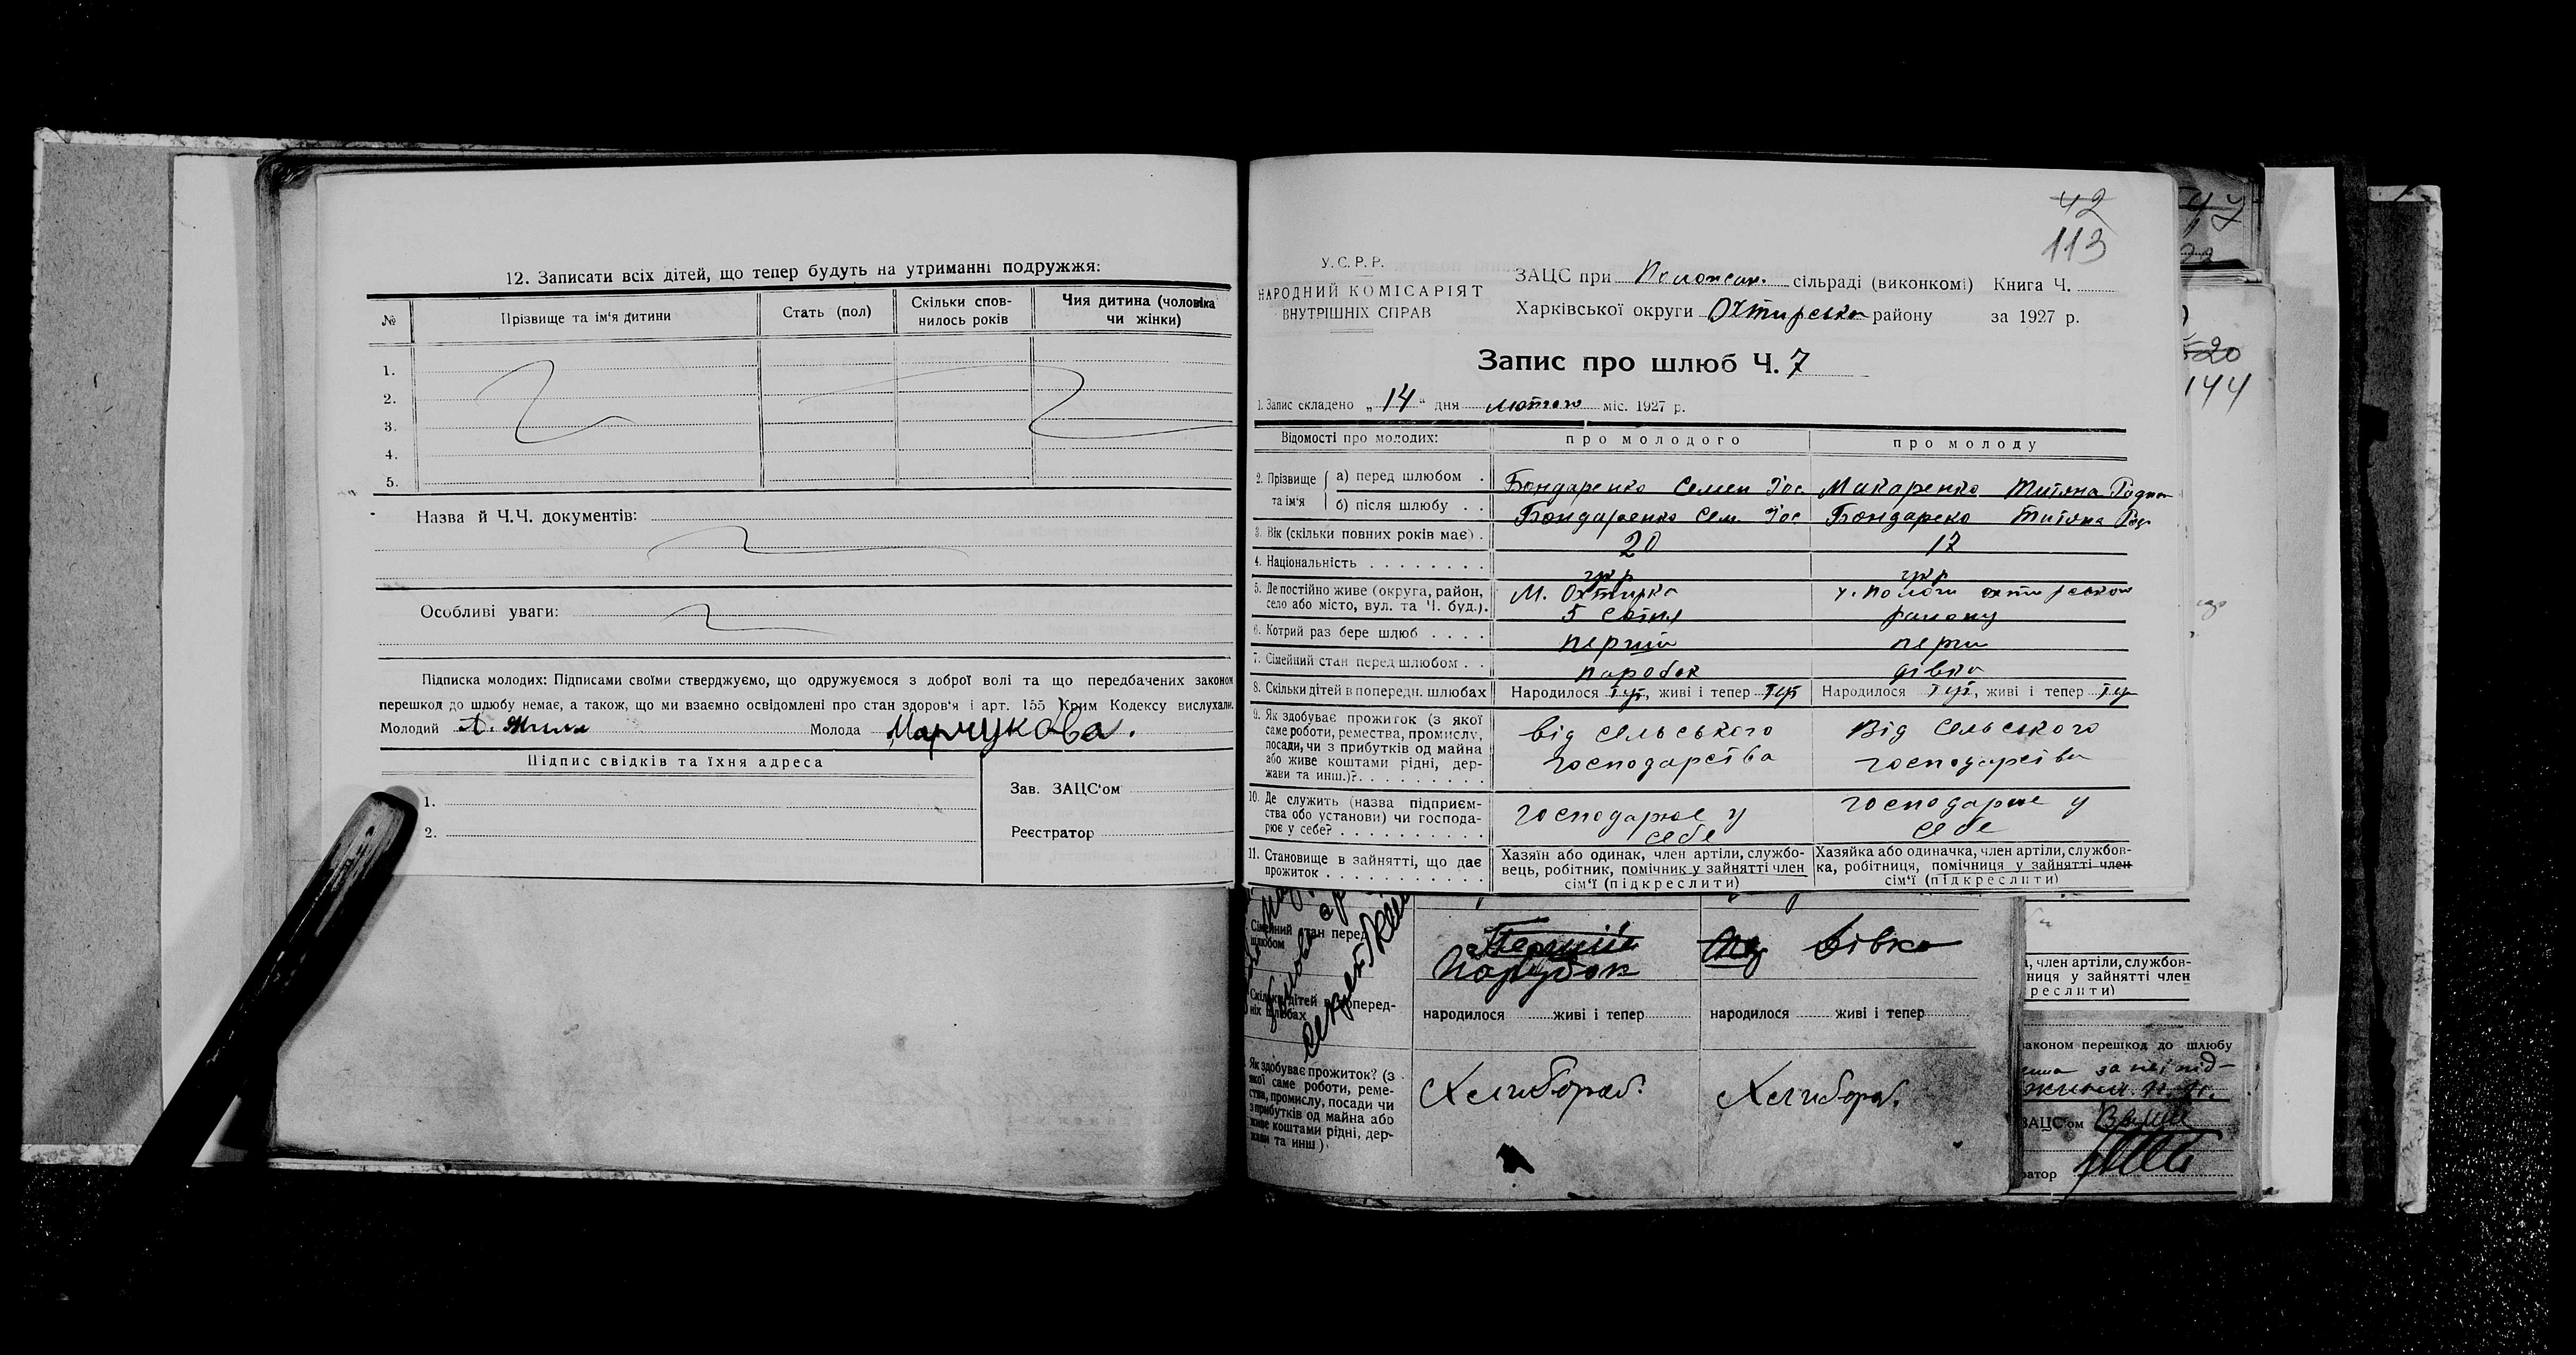 12. Записати всіх дітей, що тепер будуть на утриманні подружжя:
№ Прізвище та ім'я дитини Стать (пол) Скільки сповнилось років Чия дитина (чоловіка чи жінки)
1.
2.
3.
4.
5.
Назва й Ч.Ч. документів:
Особливі уваги:
Підписка молодих: Підписами своїми стверджуємо, що одружуємося з доброї волі та що передбачених законом
перешкод до шлюбу немає, а також, що ми взаємно освідомлені про стан здоров'я і арт. 155 Крим Кодексу вислухали.
Молодий Молода Марчукова.
Підпис свідків та їхня адреса
1.
2.
Зав. ЗАЦС'ом
Реєстратор
42
113
У.С.Р.Р.
НАРОДНИЙ КОМІСАРІЯТ
ВНУТРІШНІХ СПРАВ
ЗАЦС при сільраді (виконкомі) Книга Ч.
Харківської округи Охтирсько району за 1927 р.
Запис про шлюб Ч. 7
1. Запис складено „14" дня лютого міс. 1927 р.
Відомості про молодих: про молодого про молоду
2. Прізвище та ім'я
а) перед шлюбом Бондаренко Семен Макаренко Титяна
б) після шлюбу Бондаренко Сем. Бондареко Титяна
3. Вік (скільки повних років має) 20 17
4. Національність укр укр
5. Де постійно живе (округа, район, село або місто, вул. та Ч. буд.). М. Охтирка 5 сотня району
6. Котрий раз бере шлюб перший перш
7. Сімейний стан перед шлюбом паробок дівка
8. Скільки дітей в попередн. шлюбах Народилося , живі і тепер Народилося , живі і тепер
9. Як здобуває прожиток (з якої саме роботи, ремества, промислу, посади, чи з прибутків од майна або живе коштами рідні, держави та инш.)? від сельського господарства Від сельского господарства
10. Де служить (назва підприємства обо установи) чи господарює у себе? господарює у себе господарює у себе
11. Становище в зайнятті, що дає прожиток
Хазяїн або одинак, член артіли, службовець, робітник, помічник у зайнятті член сім'ї (підкреслити)
Хазяйка або одиначка, член артіли, службовка, робітниця, помічниця у зайнятті член сім'ї (підкреслити)
Сімейний стан перед шлюбом Перший Парубок Дівка
Скільки дітей в попередніх шлюбах народилося живі і тепер народилося живі і тепер
Як здобуває прожиток? (з якої саме роботи, ремества, промислу, посади чи з прибутків од майна або живе коштами рідні, держави та инш) Хлибороб. Хлибороб.
144
, член артіли, службов-
ниця у зайнятті член
реслити)
законом перешкод до шлюбу
ЗАЦС'ом
ратор